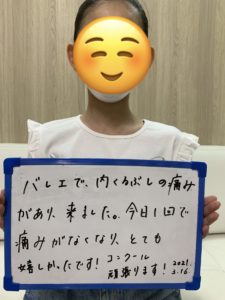 バレエで、内くるぶしの痛み
があり、来ました。今日1回で
痛みがなくなり、とても
嬉しかったです!コンクール
頑張ります! 2021.
3.16